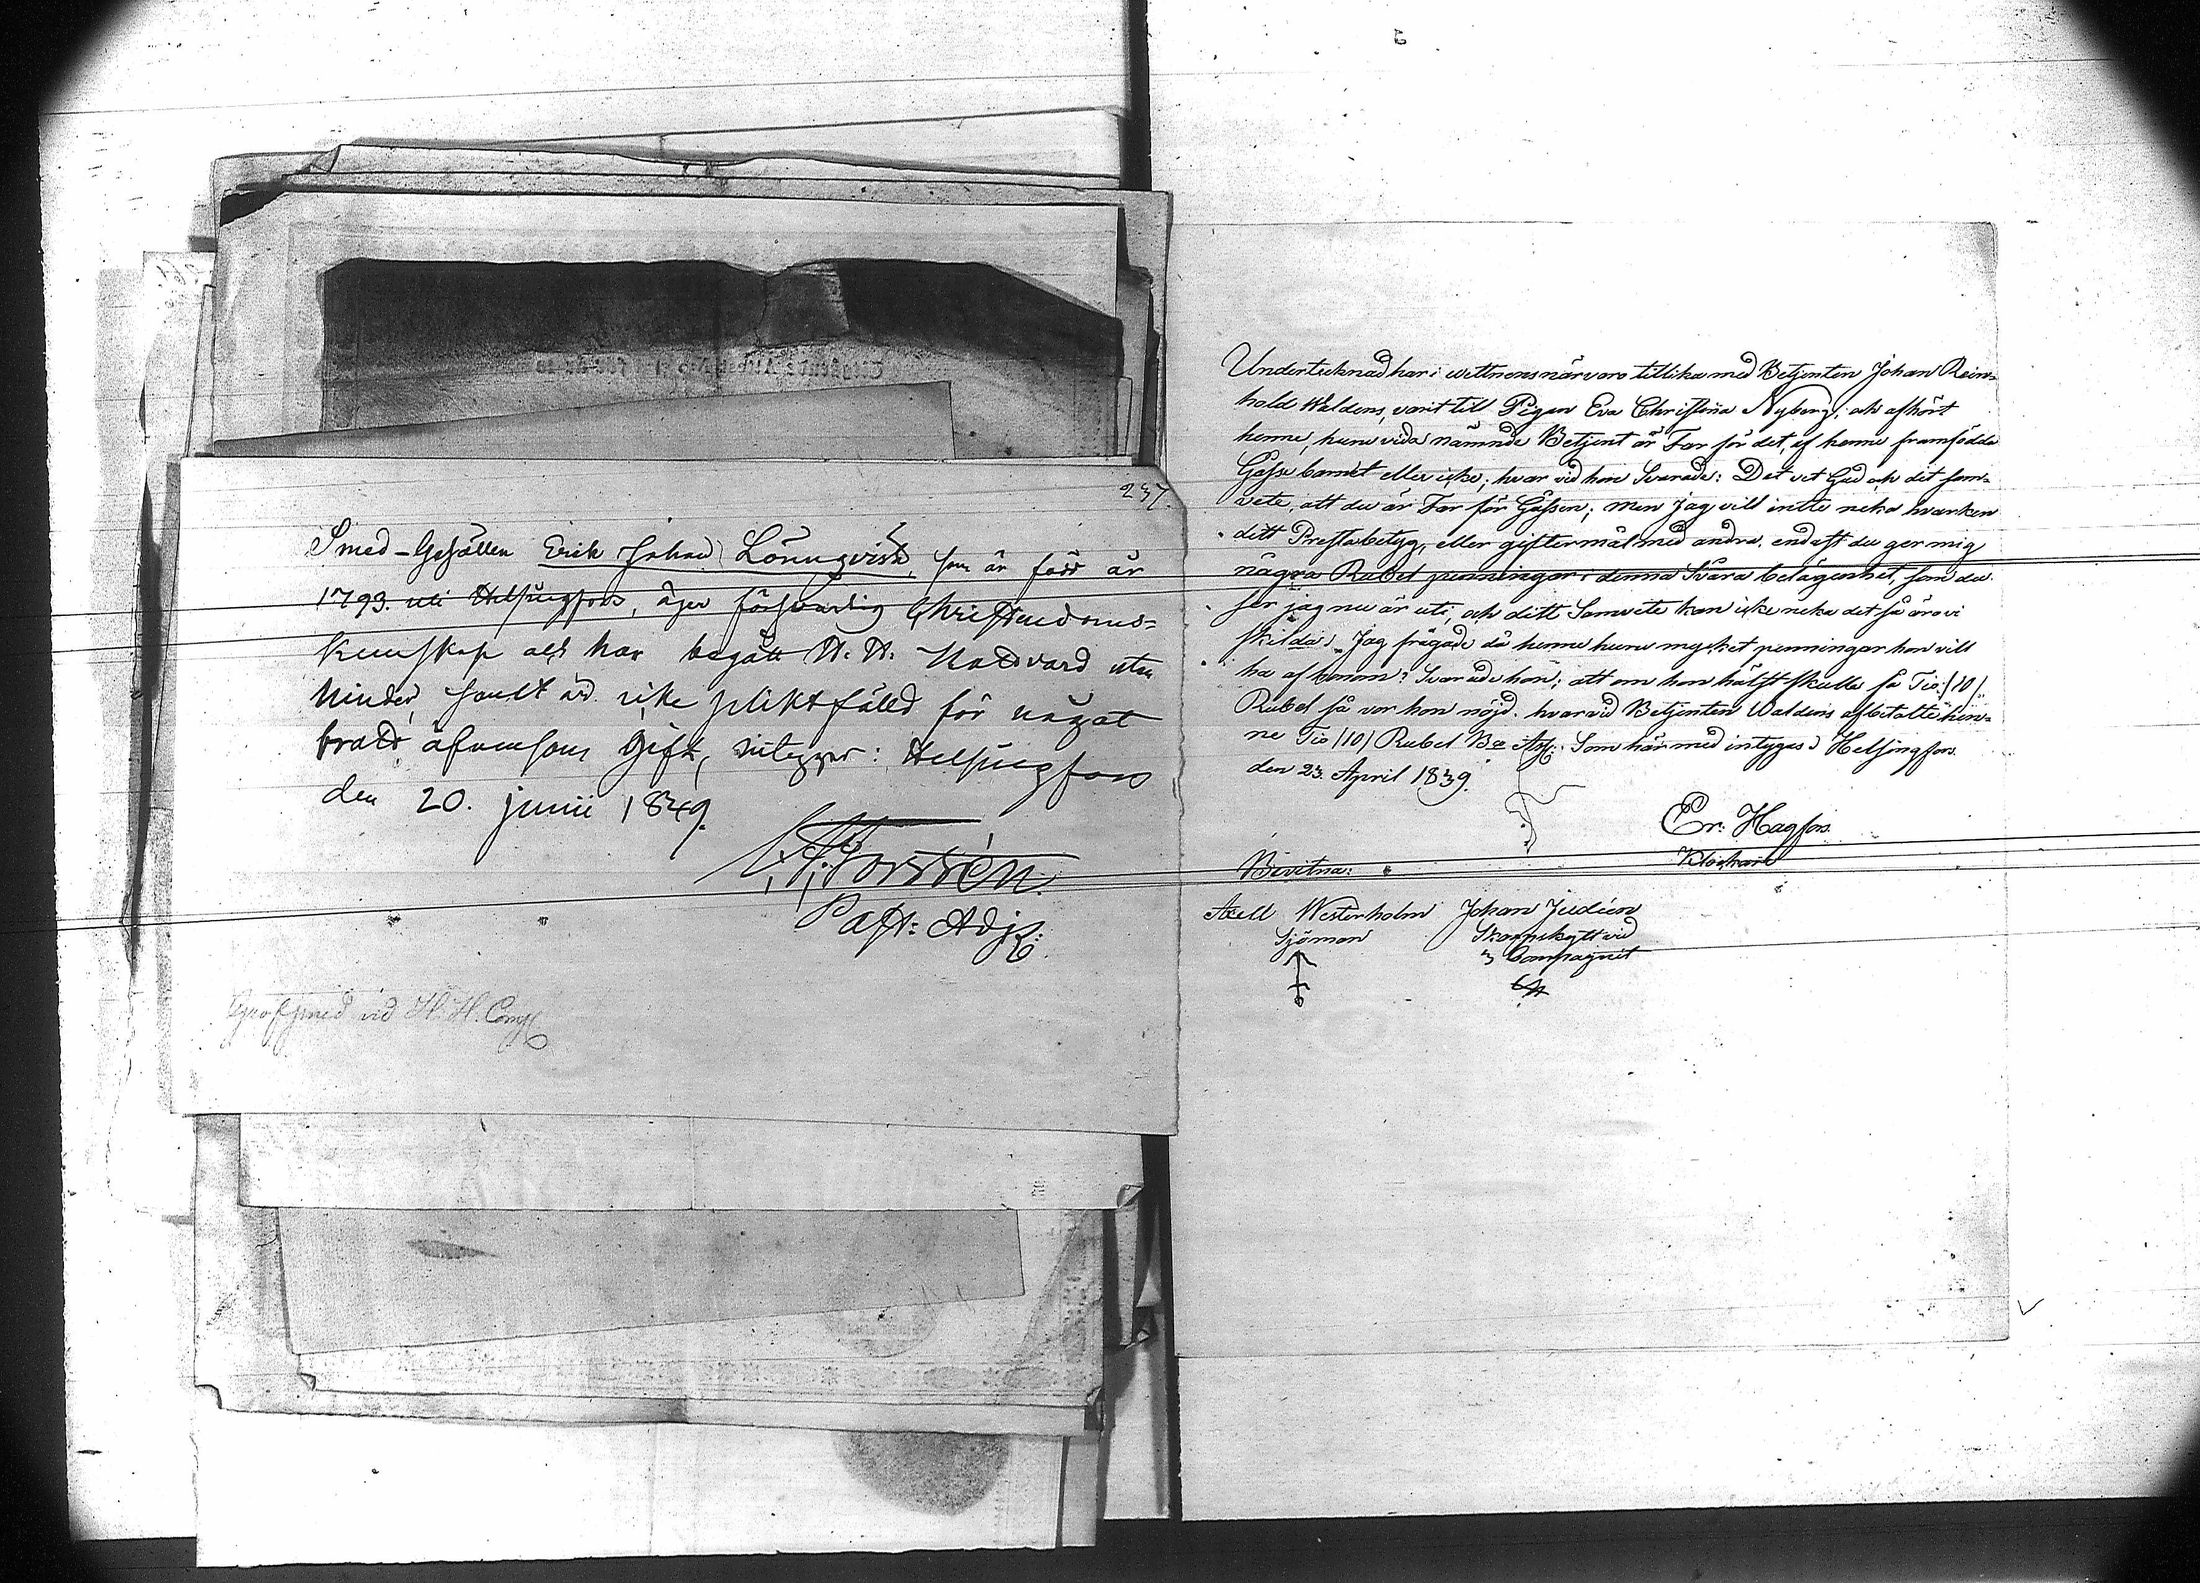 237.
Smed-Gesällen Erik Johan Lönnqvist, som är född år
1793. uti Helsingfors, äger försvarlig Christendoms-
kunskap och har begått H. H. Nattvard utan
hinder, samt är icke pliktfälld för något
brott, äfvensom gift, intygar: Helsingfors
den 20. junii 1849.
Forstén.
Past: Adj:
Grofsmed vid H. H. Comp
Undertecknad har i wittnens närvaro tillika med Betjenten Johan Rein-
hold Waldens, varit till Pigan Eva Christina Nyberg, och afhört
henne, huru vida nämnde Betjent är Far för det, af henne framfödda
Gåsse barnet eller icke; hvar vid hon Svarade: Det vet Gud och dit sam-
vete, att du är Far för Gåssen; men jag vill intte neka hvarken
ditt Prestabetyg, eller giftermål med andra. endast du ger mig
några Rubel penningar i denna Svåra belägenhet, som du
ser jag nu är uti, och ditt Samvete kan icke neka det så äro vi
skilda. Jag frågade då henne huru mycket penningar hon vill
ha af honom? Svarade hon; att om hon hälst skulle få Tio /10/
Rubel så var hon nöjd. hvarvid Betjenten Waldens afbetalte hen-
ne Tio /10/ Rubel Bco Ass: Som här med intygas. Helsingfors
den 23. April 1839.
Er: Hagfors
Klockare
Bevitna:
Axell Westerholm Johan Judien
Sjöman Skarpskytt vid
3 Compagniet